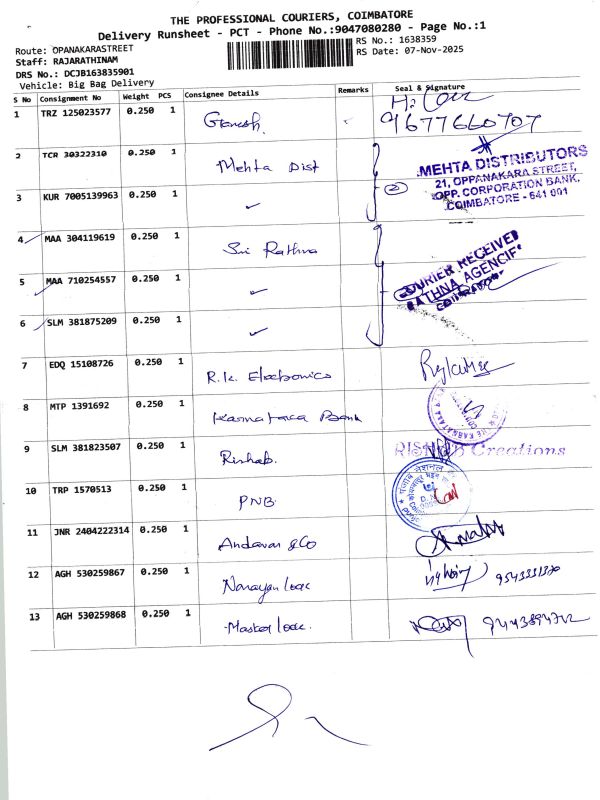 THE PROFESSIONAL COURIERS, COIMBATORE
Delivery Runsheet - PCT - Phone No.:9047080280 - Page No.:1
Route: OPANAKARASTREET
RS No.: 1638359
Staff: RAJARATHINAM
RS Date: 07-Nov-2025
DRS No.: DCJB163835901
Vehicle: Big Bag Delivery
S No Consignment No Weight PCS Consignee Details Remarks Seal & Signature
1 TRZ 125023577 0.250 1 Ganesh. 9677660707
2 TCR 30322310 0.250 1 Mehta Dist
MEHTA DISTRIBUTORS
21, OPPANAKARA STREET,
OPP. CORPORATION BANK,
COIMBATORE - 641 001
3 KUR 7005139963 0.250 1 ✓ 2
4 MAA 304119619 0.250 1 Sri Rathna
COURIER RECEIVED
RATHNA AGENCIF
5 MAA 710254557 0.250 1 ✓
6 SLM 381875209 0.250 1 ✓
7 EDQ 15108726 0.250 1 R.K. Electronics
8 MTP 1391692 0.250 1 Karnataca Bank
9 SLM 381823507 0.250 1 Rishab. Creations
10 TRP 1570513 0.250 1 PNB
11 JNR 2404222314 0.250 1 Andavar & Co
12 AGH 530259867 0.250 1 Narayan
13 AGH 530259868 0.250 1 Master